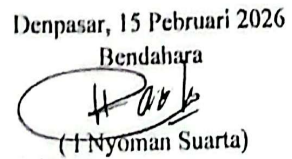 Denpasar, 15 Pebruari 2026
Bendahara
( I Nyoman Suarta)